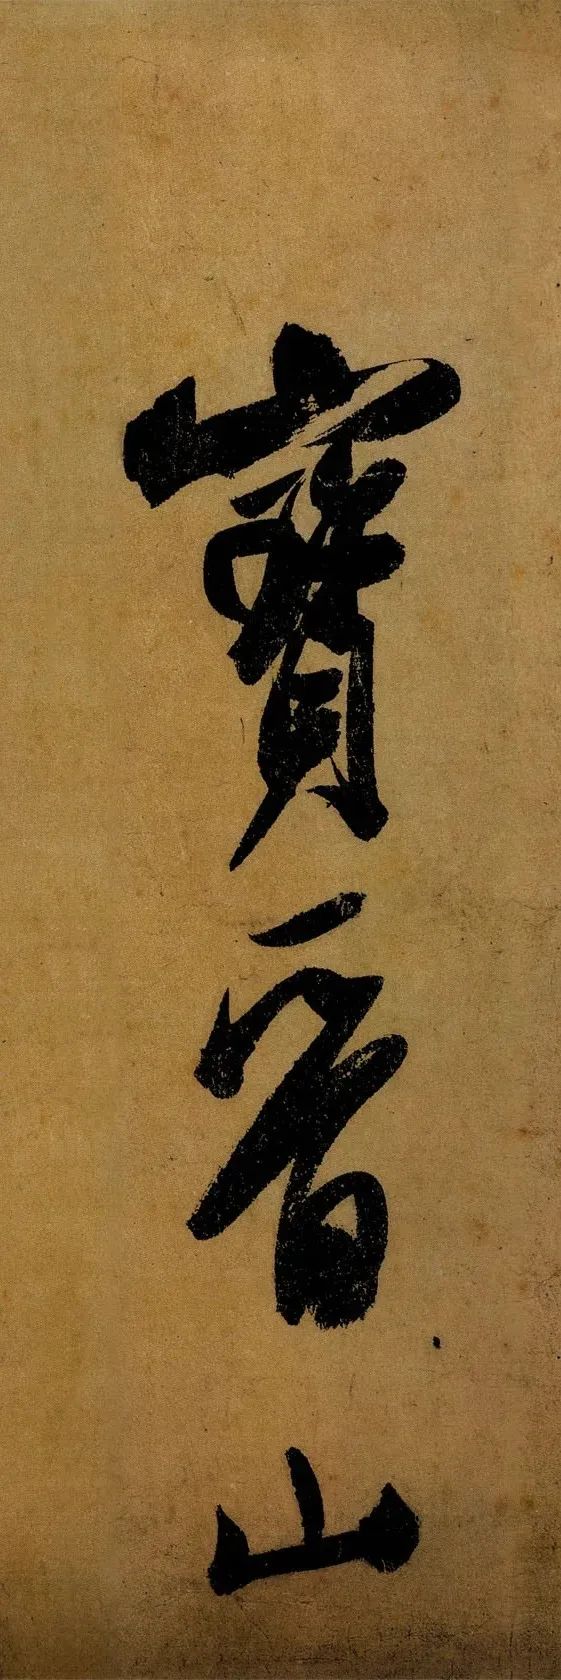 寶晉山